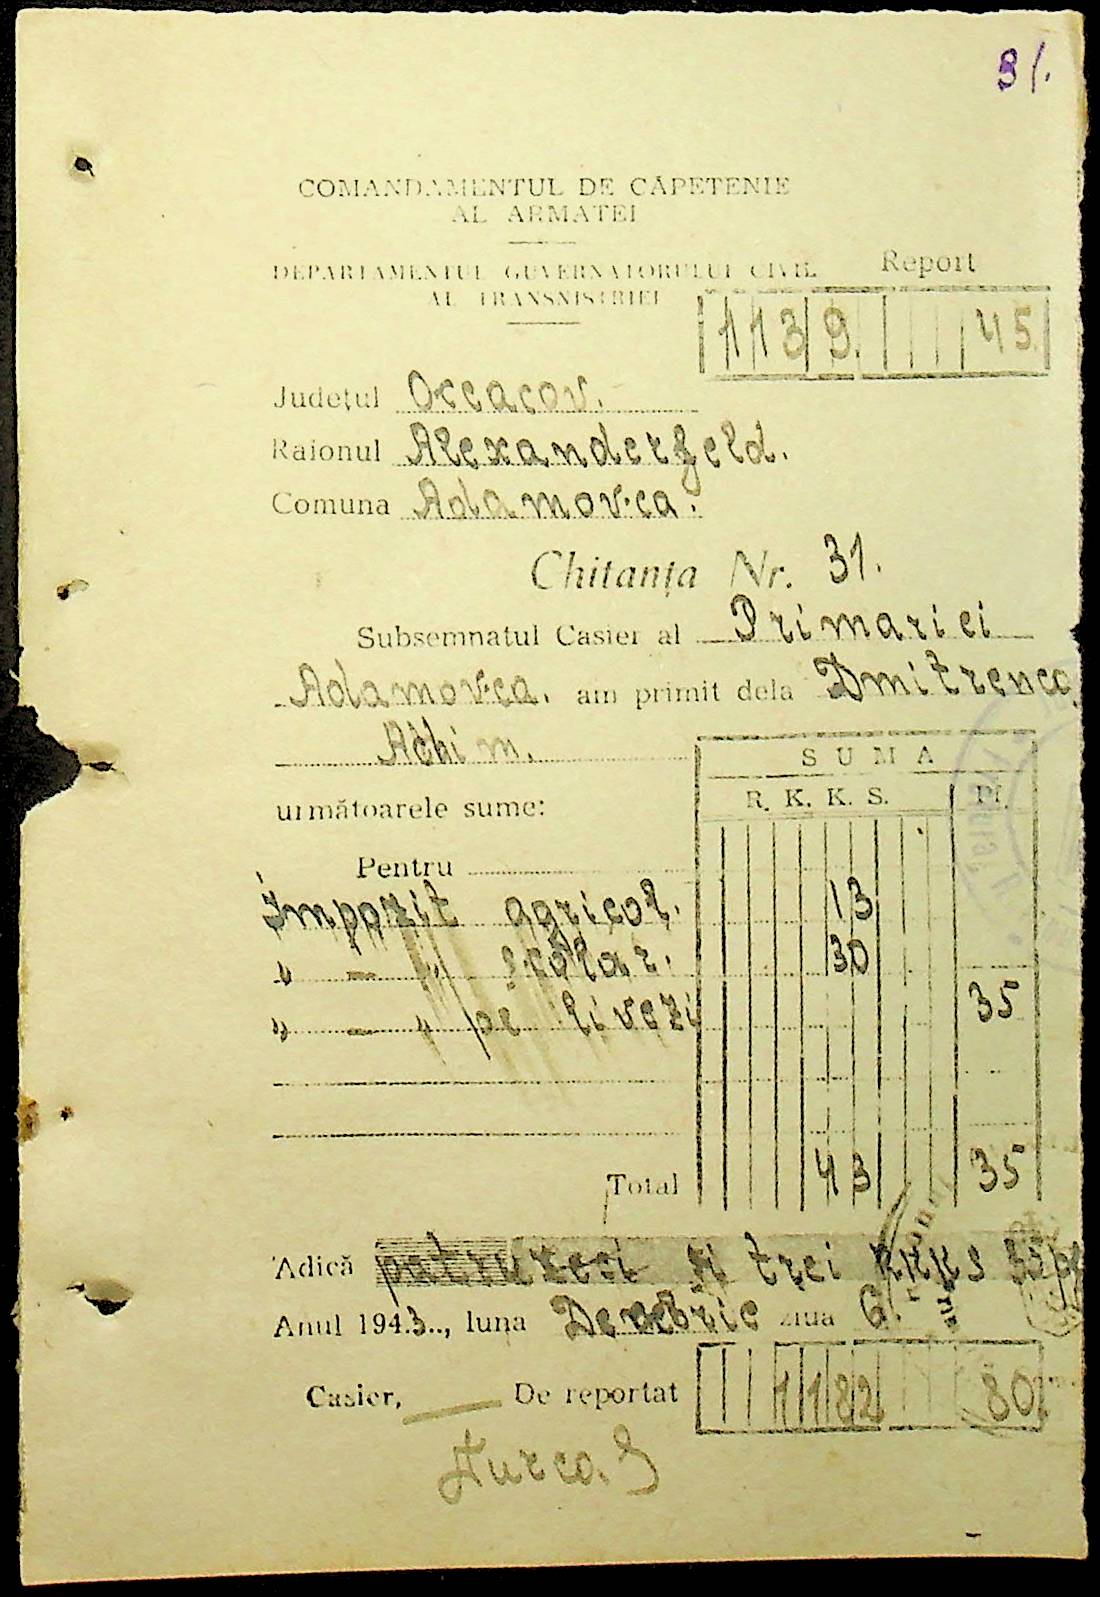 31.
COMANDAMENTUL DE CĂPETENIE
AL ARMATEI
DEPARTAMENTUL GUVERNATORULUI CIVIL
AL TRANSNISTRIEI
Report
1139. 45.
Județul Oceacov.
Raionul Alexanderfeld.
Comuna Adamovca.
Chitanța Nr. 31.
Subsemnatul Casier al Primariei
Adamovca. am primit dela Dmitrenco
Achim.
SUMA
R. K. K. S. Pf.
următoarele sume:
Pentru
Impozit agricol. 13
" — " școlar. 30
" — " pe livezi 35
Total 43 35
Adică patruzeci și trei RKKS 35 pf
Anul 1943.., luna Decebrie ziua 6.
Casier, De reportat 1182 80
Turco.